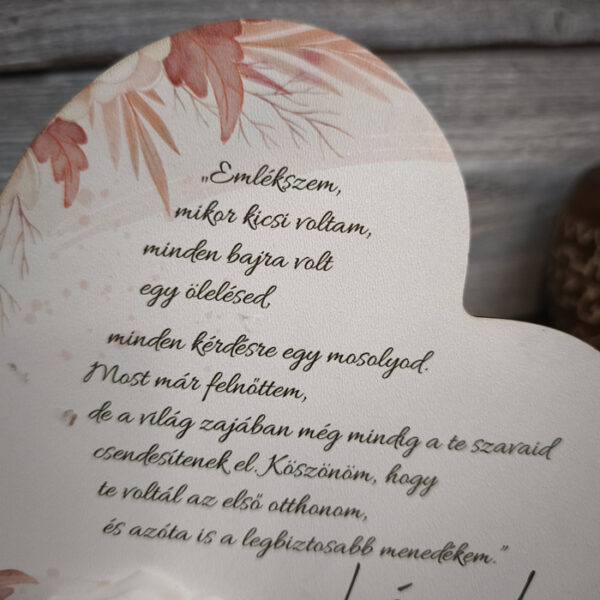 „Emlékszem,
mikor kicsi voltam,
minden bajra volt
egy ölelésed,
minden kérdésre egy mosolyod.
Most már felnőttem,
de a világ zajában még mindig a te szavaid
csendesítenek el. Köszönöm, hogy
te voltál az első otthonom,
és azóta is a legbiztosabb menedékem.”